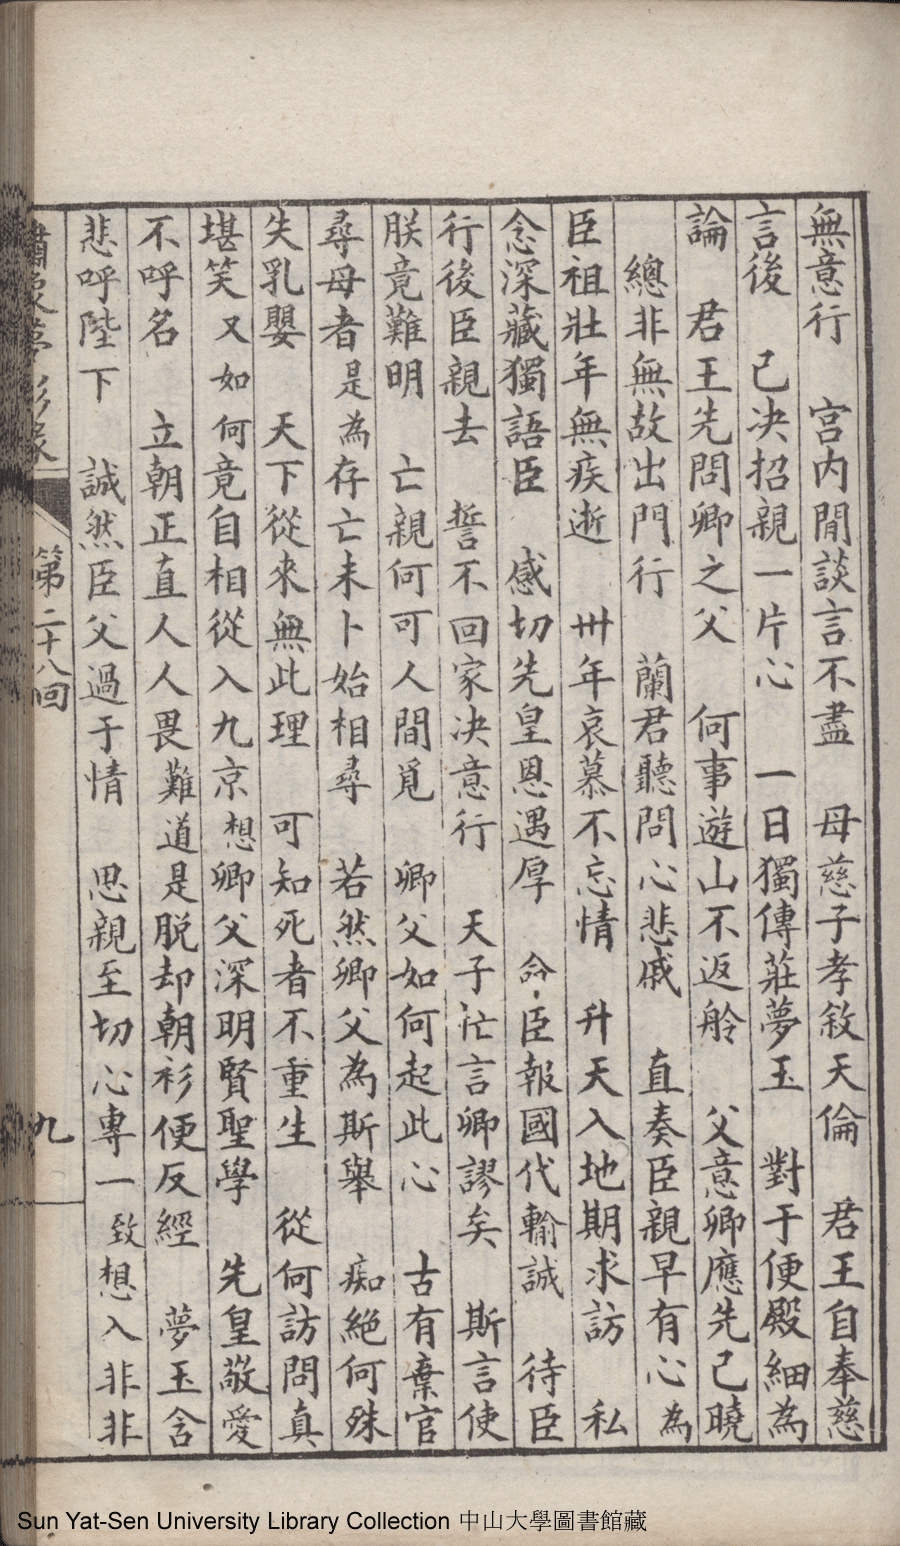 無意行　宮內閒談言不盡　母慈子孝敘天倫　君王自奉慈
言後　已决招親一片心　一日獨傳莊夢玉　對于便殿細為
論　君王先問卿之父　何事遊山不返舲　父意卿應先已曉
總非無故出門行　蘭君聽問心悲戚　直奏臣親早有心為
臣祖壯年無疾逝　卅年哀慕不忘情　升天入地期求訪　私
念深藏獨語臣　感切先皇恩遇厚　命臣報國代輸誠　待臣
行後臣親去　誓不回家决意行　天子忙言卿謬矣　斯言使
朕竟難明　亡親何可人間覓　卿父如何起此心　古有棄官
尋母者是為存亡未卜始相尋　若然卿父為斯舉　痴絕何殊
失乳嬰　天下從來無此理　可知死者不重生　從何訪問真
堪笑又如何竟自相從入九京想卿父深明賢聖學　先皇敬愛
不呼名　立朝正直人人畏難道是脫却朝衫便反經　夢玉含
悲呼陛下　誠然臣父過于情　思親至切心專一致想入非非
第二十八回
九
Sun Yat-Sen University Library Collection 中山大學圖書館藏